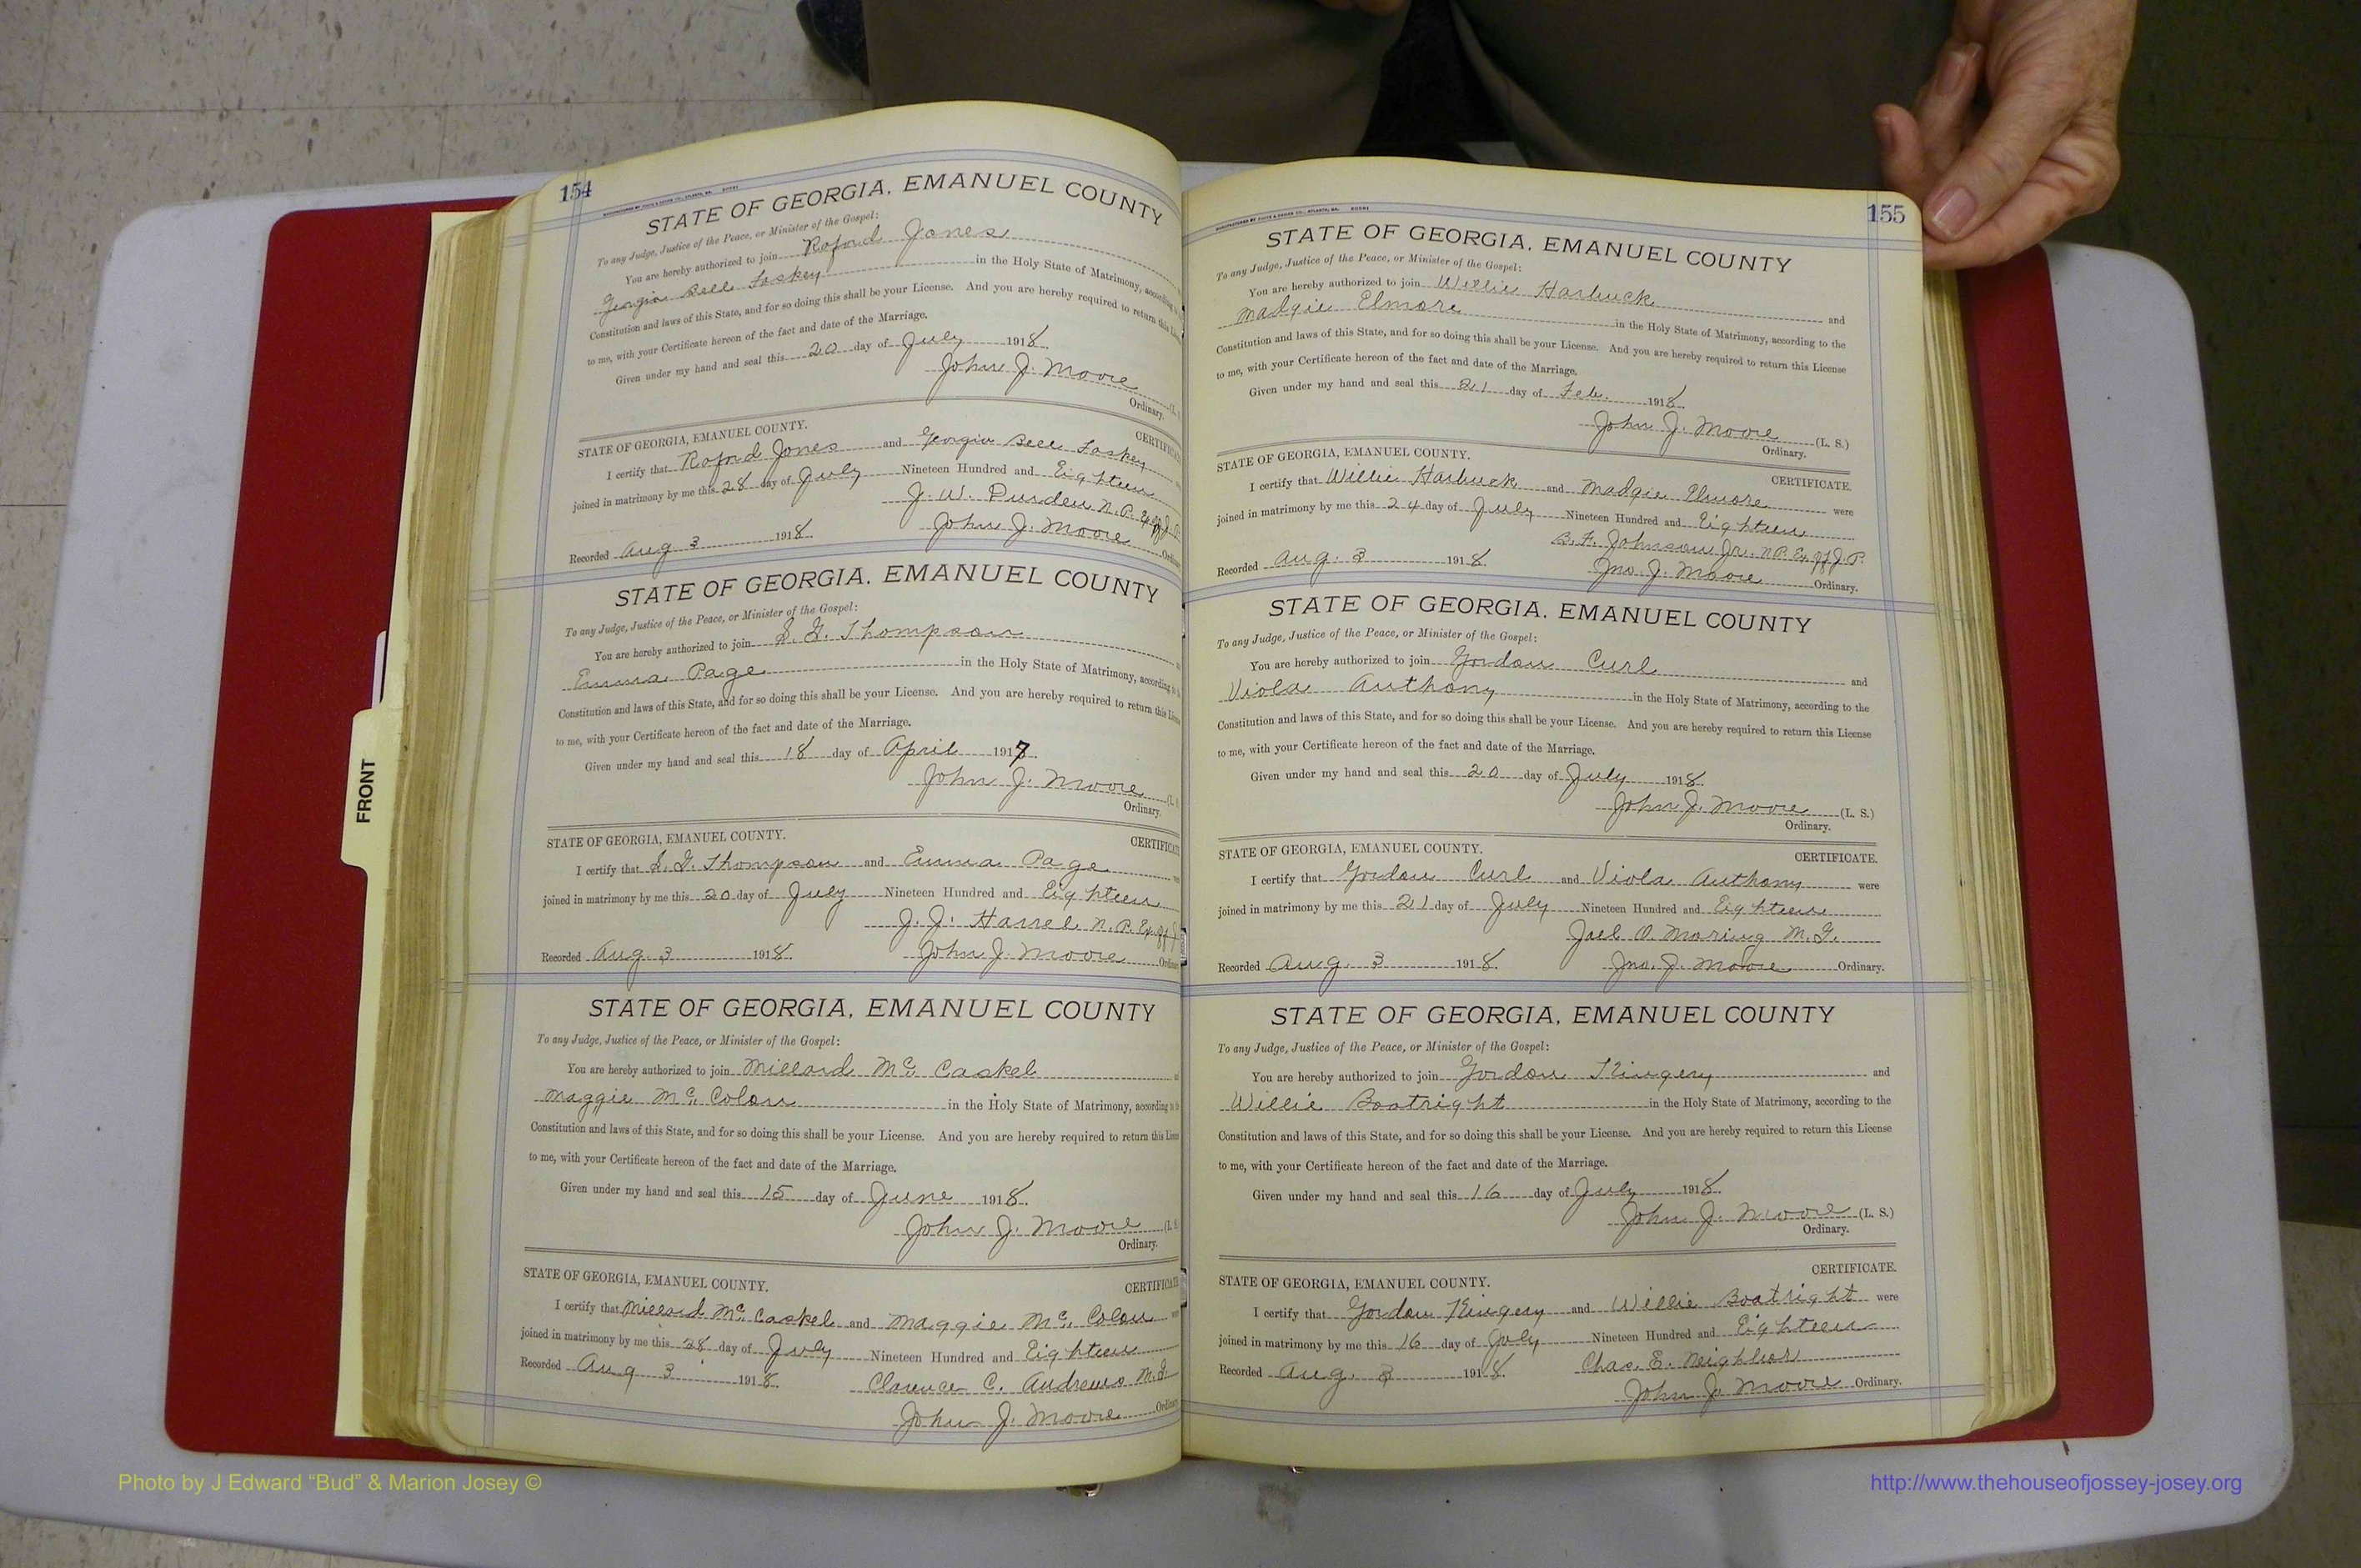 154
STATE OF GEORGIA, EMANUEL COUNTY
To any Judge, Justice of the Peace, or Minister of the Gospel:
You are hereby authorized to join Jones
Georgia Bell in the Holy State of Matrimony, according
Constitution and laws of this State, and for so doing this shall be your License. And you are hereby required to return this
to me, with your Certificate hereon of the fact and date of the Marriage.
Given under my hand and seal this 20 day of July 1918.
John J. Moore
Ordinary.
STATE OF GEORGIA, EMANUEL COUNTY. CERTIFICATE
I certify that Jones and Georgia Bell
joined in matrimony by me this 28 day of July Nineteen Hundred and Eighteen
J. W. Durden N. P. Ex off J. P.
Recorded Aug 3 1918. John J. Moore Ordinary
STATE OF GEORGIA, EMANUEL COUNTY
To any Judge, Justice of the Peace, or Minister of the Gospel:
You are hereby authorized to join S. G. Thompson
Emma Page in the Holy State of Matrimony, according
Constitution and laws of this State, and for so doing this shall be your License. And you are hereby required to return this
to me, with your Certificate hereon of the fact and date of the Marriage.
Given under my hand and seal this 18 day of April 1917.
John J. Moore
Ordinary.
STATE OF GEORGIA, EMANUEL COUNTY. CERTIFICATE
I certify that S. G. Thompson and Emma Page
joined in matrimony by me this 20 day of July Nineteen Hundred and Eighteen
J. J. Harrel N. P. Ex off J
Recorded Aug. 3 1918. John J. Moore Ordinary
STATE OF GEORGIA, EMANUEL COUNTY
To any Judge, Justice of the Peace, or Minister of the Gospel:
You are hereby authorized to join Millard Mc. Caskel
Maggie Mc. Colon in the Holy State of Matrimony, according
Constitution and laws of this State, and for so doing this shall be your License. And you are hereby required to return this
to me, with your Certificate hereon of the fact and date of the Marriage.
Given under my hand and seal this 15 day of June 1918.
John J. Moore
Ordinary.
STATE OF GEORGIA, EMANUEL COUNTY. CERTIFICATE
I certify that Millard Mc. Caskel and Maggie Mc. Colon
joined in matrimony by me this 28 day of July Nineteen Hundred and Eighteen
Recorded Aug 3 1918. Clarence C. Andrews M. G.
John J. Moore Ordinary
155
STATE OF GEORGIA, EMANUEL COUNTY
To any Judge, Justice of the Peace, or Minister of the Gospel:
You are hereby authorized to join Willie Harbuck and
Madgie Elmore in the Holy State of Matrimony, according to the
Constitution and laws of this State, and for so doing this shall be your License. And you are hereby required to return this License
to me, with your Certificate hereon of the fact and date of the Marriage.
Given under my hand and seal this 21 day of Feb. 1918.
John J. Moore (L. S.)
Ordinary.
STATE OF GEORGIA, EMANUEL COUNTY. CERTIFICATE.
I certify that Willie Harbuck and Madgie Elmore were
joined in matrimony by me this 24 day of July Nineteen Hundred and Eighteen
B. F. Johnson Jr. N. P. Ex off J. P.
Recorded Aug. 3 1918. Jno. J. Moore Ordinary.
STATE OF GEORGIA, EMANUEL COUNTY
To any Judge, Justice of the Peace, or Minister of the Gospel:
You are hereby authorized to join Gordon Curl and
Viola Anthony in the Holy State of Matrimony, according to the
Constitution and laws of this State, and for so doing this shall be your License. And you are hereby required to return this License
to me, with your Certificate hereon of the fact and date of the Marriage.
Given under my hand and seal this 20 day of July 1918.
John J. Moore (L. S.)
Ordinary.
STATE OF GEORGIA, EMANUEL COUNTY. CERTIFICATE.
I certify that Gordon Curl and Viola Anthony were
joined in matrimony by me this 21 day of July Nineteen Hundred and Eighteen
Joel O. Maring M. G.
Recorded Aug. 3 1918. Jno. J. Moore Ordinary.
STATE OF GEORGIA, EMANUEL COUNTY
To any Judge, Justice of the Peace, or Minister of the Gospel:
You are hereby authorized to join Gordon Kingery and
Willie Boatright in the Holy State of Matrimony, according to the
Constitution and laws of this State, and for so doing this shall be your License. And you are hereby required to return this License
to me, with your Certificate hereon of the fact and date of the Marriage.
Given under my hand and seal this 16 day of July 1918.
John J. Moore (L. S.)
Ordinary.
STATE OF GEORGIA, EMANUEL COUNTY. CERTIFICATE.
I certify that Gordon Kingery and Willie Boatright were
joined in matrimony by me this 16 day of July Nineteen Hundred and Eighteen
Recorded Aug. 3 1918. Chas. E. Neighbor
John J. Moore Ordinary.
FRONT
Photo by J Edward “Bud” & Marion Josey ©
http://www.thehouseofjossey-josey.org